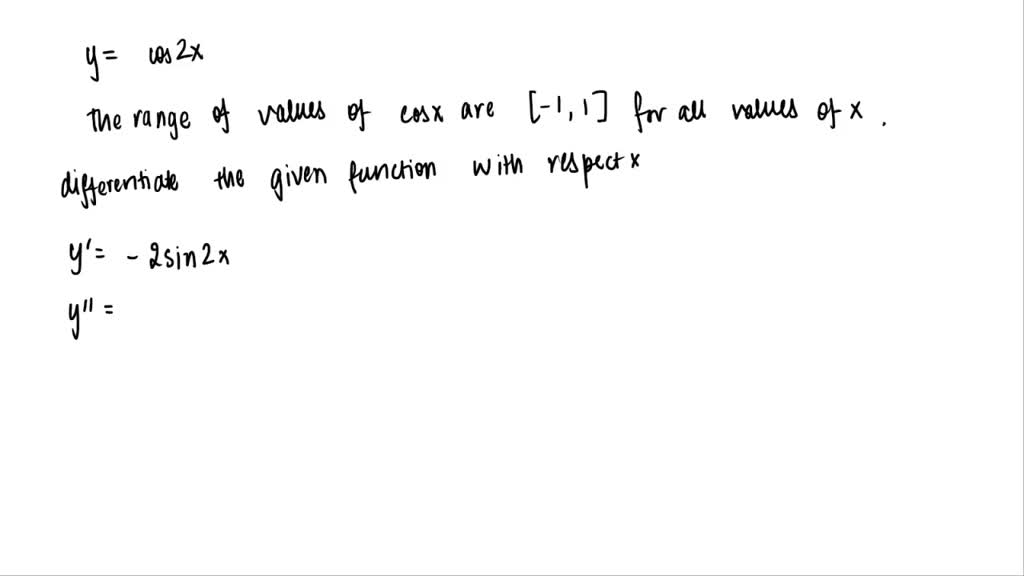 y = cos 2x
The range of values of cosx are [-1, 1] for all values of x .
differentiate the given function with respect x
y' = - 2 sin 2x
y'' =